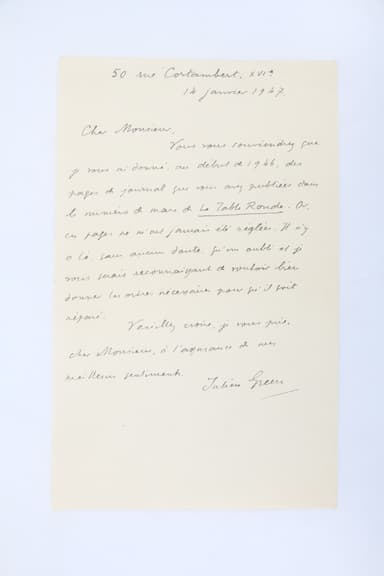 50 rue Cortambert, XVIe
14 janvier 1947
Cher Monsieur,
Vous vous souviendrez que
je vous ai donné, au début de 1946, des
pages de journal que vous avez publiées dans
le numéro de mars de La Table Ronde. Or,
ces pages ne m'ont jamais été réglées. Il n'y
a là, sans aucun doute, qu'un oubli et je
vous serais reconnaissant de vouloir bien
donner les ordres nécessaires pour qu'il soit
réparé.
Veuillez croire, je vous prie,
cher Monsieur, à l'assurance de mes
meilleurs sentiments.
Julien Green